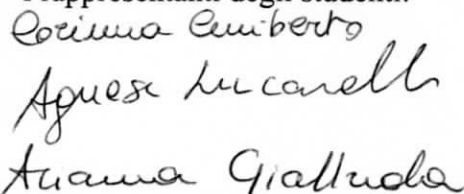 rappresentanti degli studenti:
Corinna Cuniberto
Agnese Lucarelli
Arianna